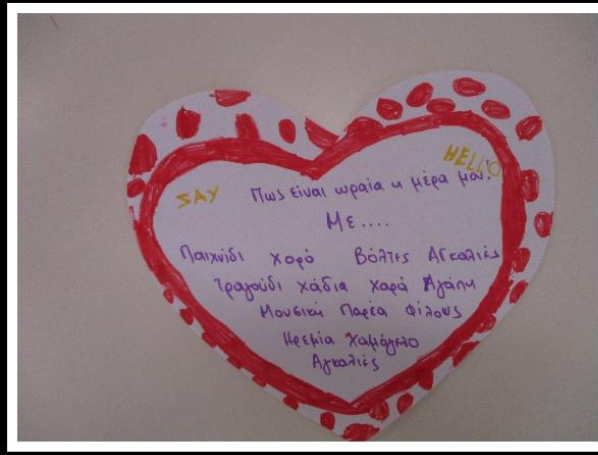 SAY HELLO
Πως είναι ωραία η μέρα μου;
Με....
Παιχνίδι χορό Βόλτες Αγκαλιές
Τραγούδι χάδια χαρά Αγάπη
Μουσική Παρέα Φίλους
Ηρεμία Χαμόγελο
Αγκαλιές